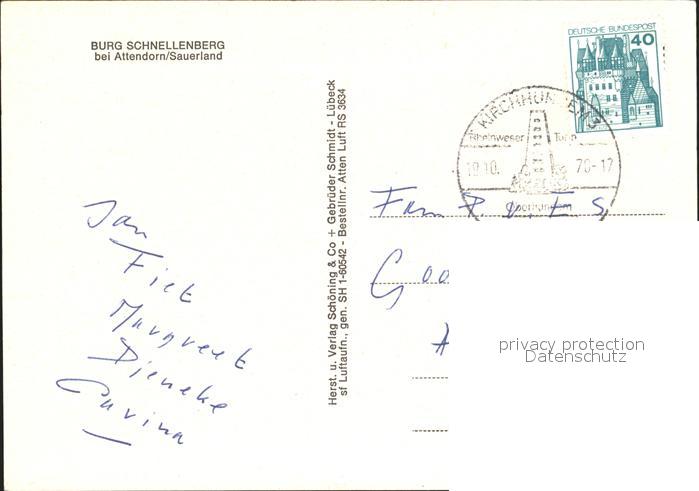 BURG SCHNELLENBERG
bei Attendorn/Sauerland
Herst. u. Verlag Schöning & Co + Gebrüder Schmidt - Lübeck
sf Luftaufn., gen. SH 1-60542 - Bestellnr. Atten Luft RS 3634
DEUTSCHE BUNDESPOST
40
KIRCHHUNDEM
Rheinweser Turm
Oberhundem
Jan
Fiet
Margreet
Dieneke
Carina
Fam
privacy protection
Datenschutz